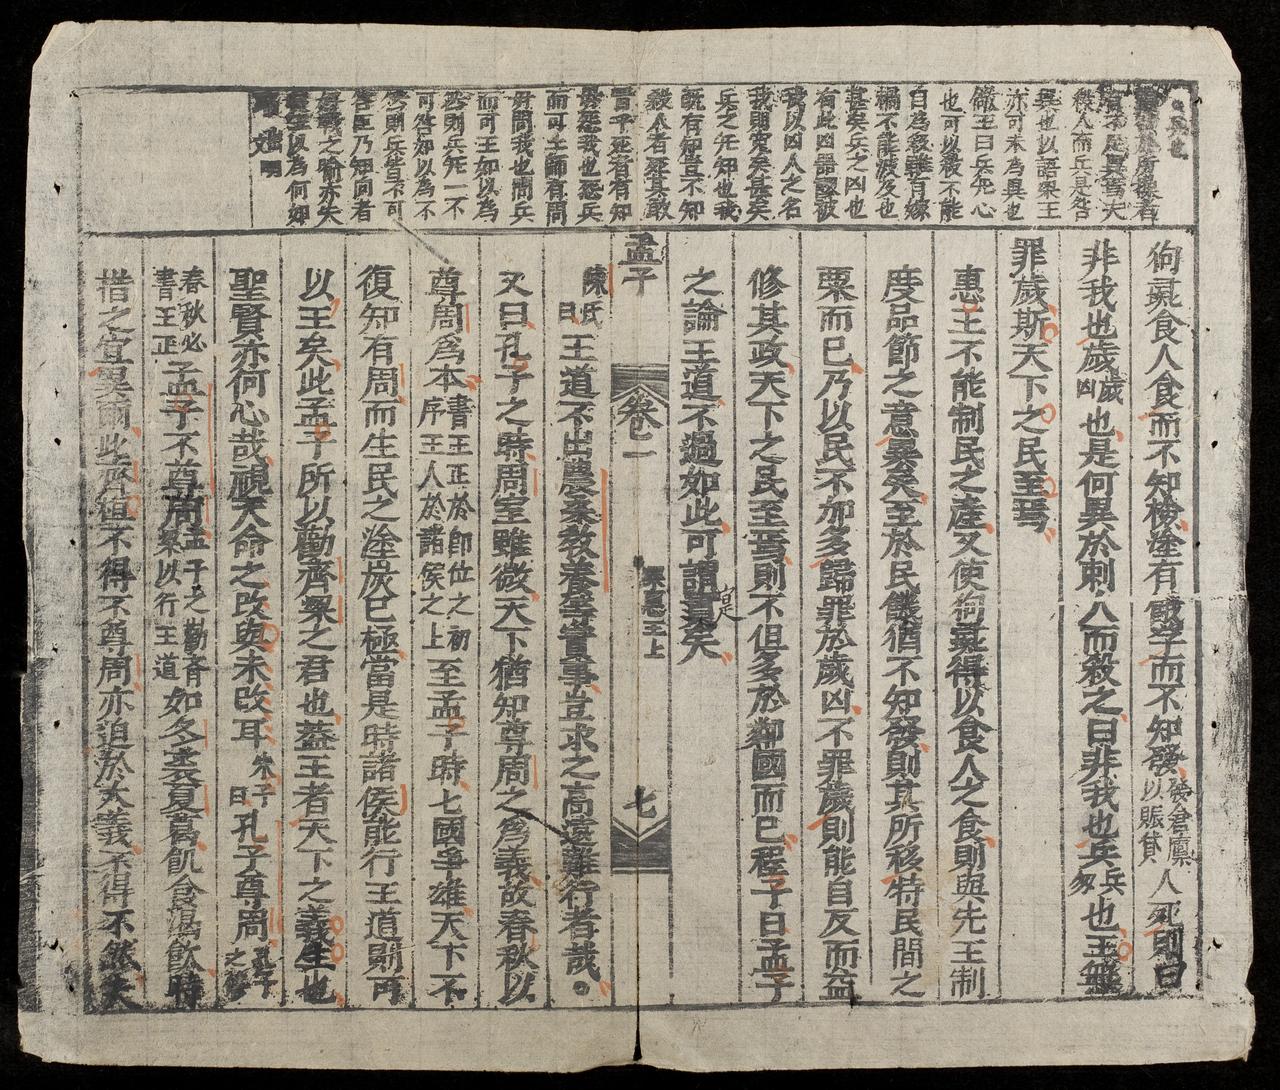 狗彘食人食而不知檢塗有餓莩而不知發發倉廩以賑貸人死則曰
非我也歲歲凶也是何異於刺人而殺之曰非我也兵兵刃也王無
罪歲斯天下之民至焉
惠王不能制民之產又使狗彘得以食人之食則與先王制
度品節之意異矣至於民饑猶不知發則其所移特民間之
粟而已乃以民不加多歸罪於歲凶不罪歲則能自反而益
修其政天下之民至焉則不但多於鄰國而已程子曰孟子
之論王道不過如此可謂實矣
孟子
卷一
梁惠王上
七
陳氏曰王道不出農桑教養等實事豈求之高遠難行者哉。
又曰孔子之時周室雖微天下猶知尊周之爲義故春秋以
尊周爲本書王正於卽位之初序王人於諸侯之上至孟子時七國爭雄天下不
復知有周而生民之塗炭已極當是時諸侯能行王道則可
以王矣此孟子所以勸齊梁之君也蓋王者天下之義主也
聖賢亦何心哉視天命之改與未改耳朱子曰孔子尊周
春秋必書王正孟子不尊周孟子之勸齊梁以行王道如冬裘夏葛飢食渴飮時
措之宜異爾此齊桓不得不尊周亦迫於大義不得不然夫
人而兵是咎
異也以語梁王
亦可本為異也
王曰兵死心
也可以殺不能
甚矣兵之凶也
有此凶器
我以凶人之名
我則冤矣甚矣
兵之死知也我
旣有知豈不知
殺人者死其敢
而可士師有問
好問我也問兵
而可王如以為
然則兵死一不
可咎如以為不
然則兵皆不可
咎臣乃知向者
好戰之喻亦失
以為何如